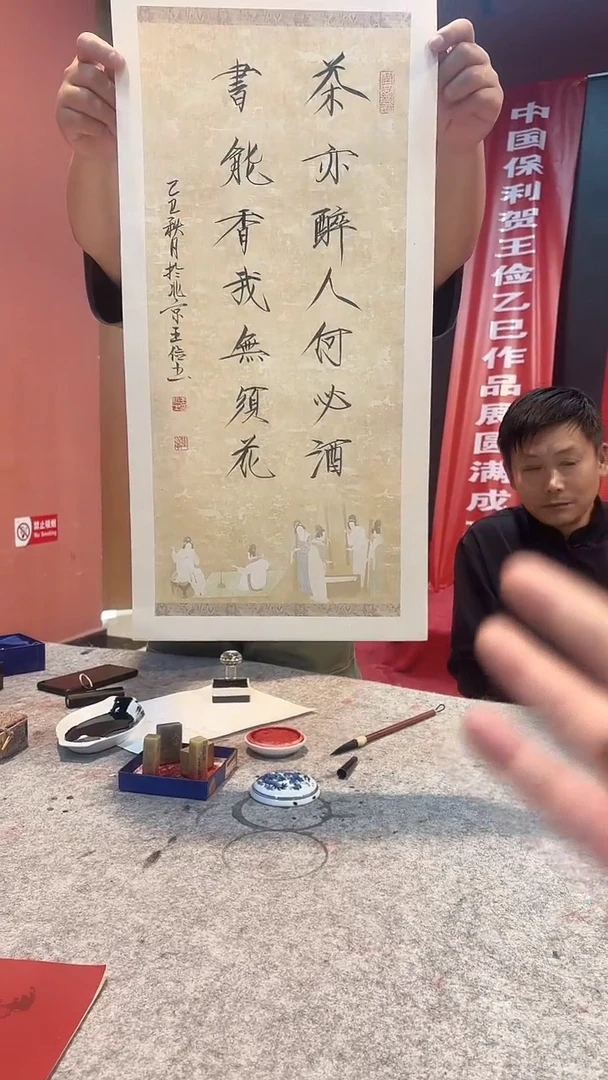 茶亦醉人何必酒
書能香我無須花
乙巳秋月於北京王俭书
中国保利贺王俭乙巳作品展圆满成
禁止吸烟
No Smoking